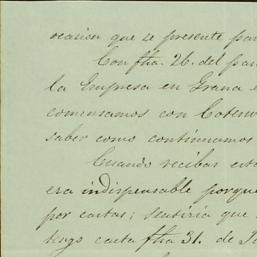 ocasion que se presente par
Con fha. 26. del pa
la Empresa en Grana e
comensamos con
saber como continuamos
Cuando recibas est
era indispensable porque
por cartas; sentiria que
tengo carta fha 31. de